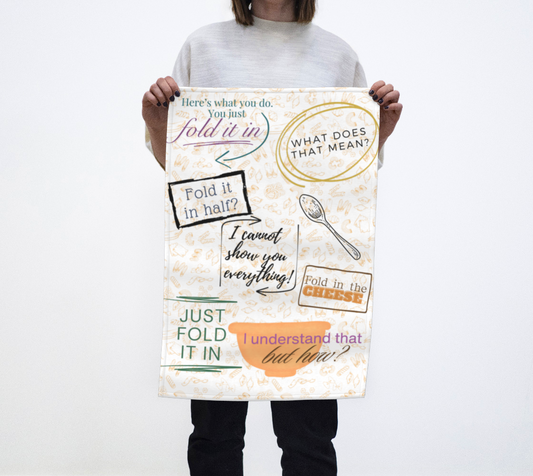 Here's what you do.
You just
fold it in
WHAT DOES
THAT MEAN?
Fold it
in half?
I cannot
show you
everything!
Fold in the
CHEESE
JUST
FOLD
IT IN
I understand that
but how?